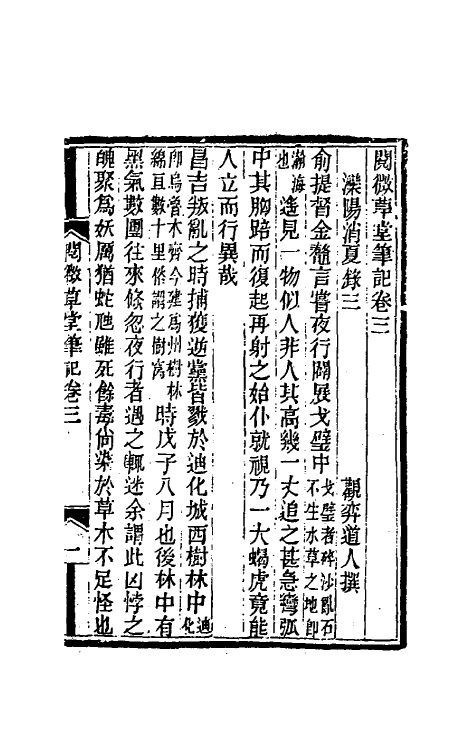 閱微草堂筆記卷三
灤陽消夏錄三　觀弈道人撰
俞提督金鰲言嘗夜行闢展戈璧中戈璧者碎沙亂石不生水草之地卽
瀚海也遙見一物似人非人其高幾一丈追之甚急彎弧
中其胸踣而復起再射之始仆就視乃一大蝎虎竟能
人立而行異哉
昌吉叛亂之時捕獲逆黨皆戮於迪化城西樹林中迪化
卽烏魯木齊今建爲州樹林綿亘數十里俗謂之樹窩時戊子八月也後林中有
黑氣數團往來倏忽夜行者遇之輒迷余謂此凶悖之
魄聚爲妖厲猶蛇虺雖死餘毒尚染於草木不足怪也
閱微草堂筆記卷三
一